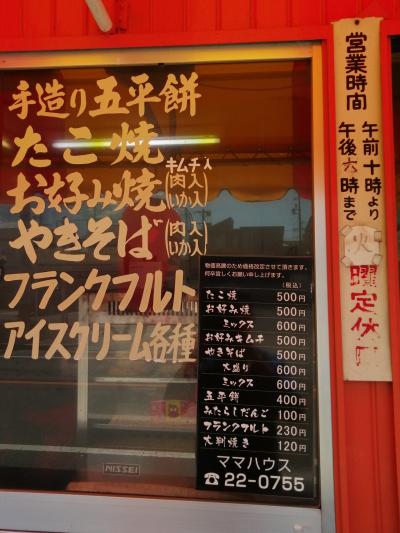 手造り五平餅
たこ焼
お好み焼(肉入 キムチ入 いか入)
やきそば(肉入 いか入)
フランクフルト
アイスクリーム各種
物価高騰のため価格改定させて頂きます。
何卒宜しくお願い申し上げます。
(税込)
たこ焼 500円
お好み焼 500円
ミックス 600円
お好みキムチ 500円
やきそば 500円
大盛り 600円
ミックス 600円
五平餅 400円
みたらしだんご 100円
フランクフルト 230円
大判焼き 120円
ママハウス
☎22-0755
NISSEI
営業時間
午前十時より
午後六時まで
火曜定休日